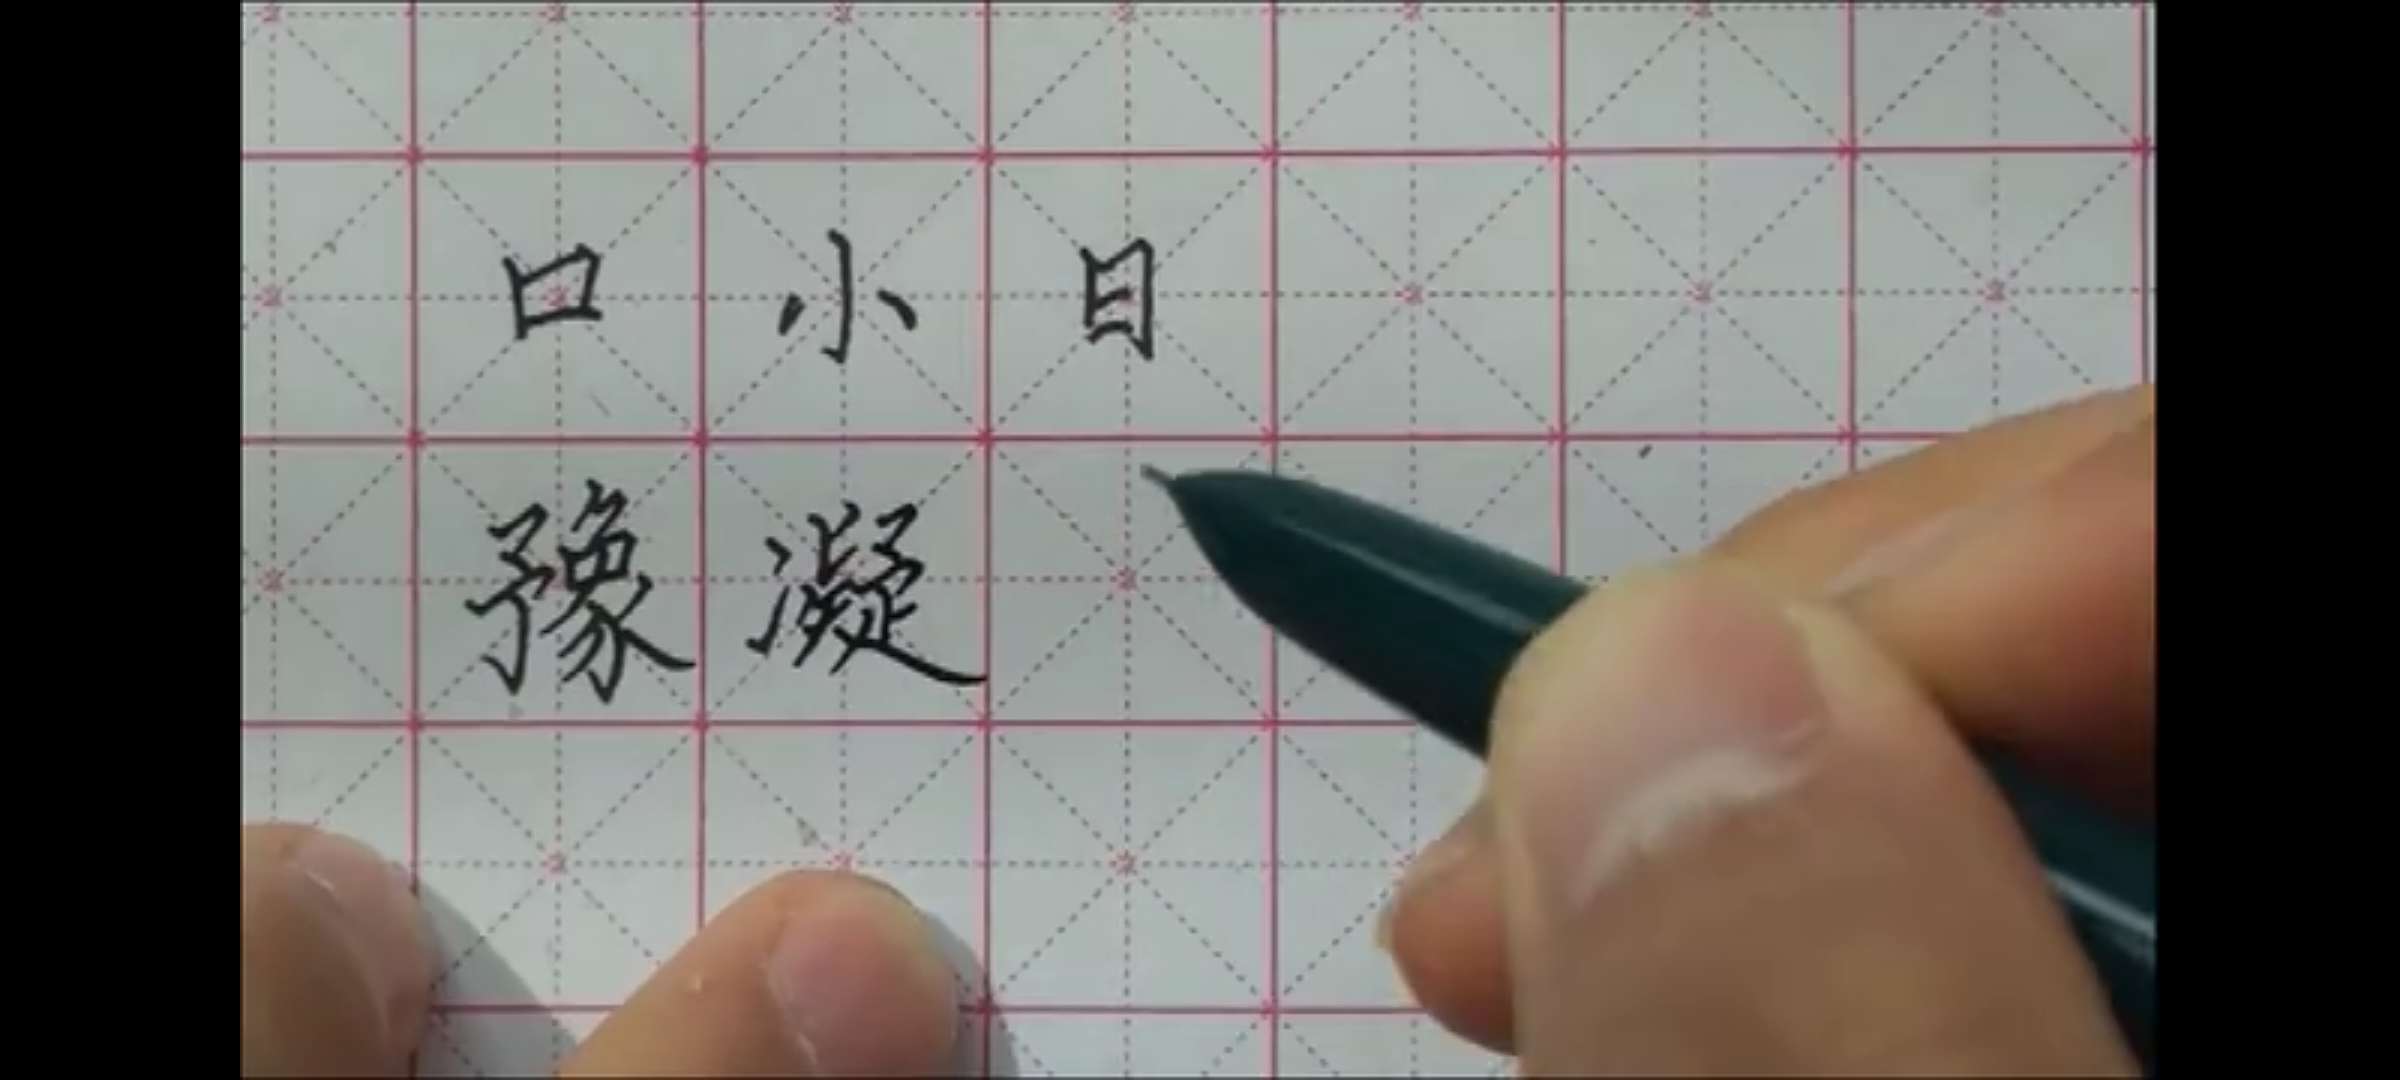 口小日
豫凝